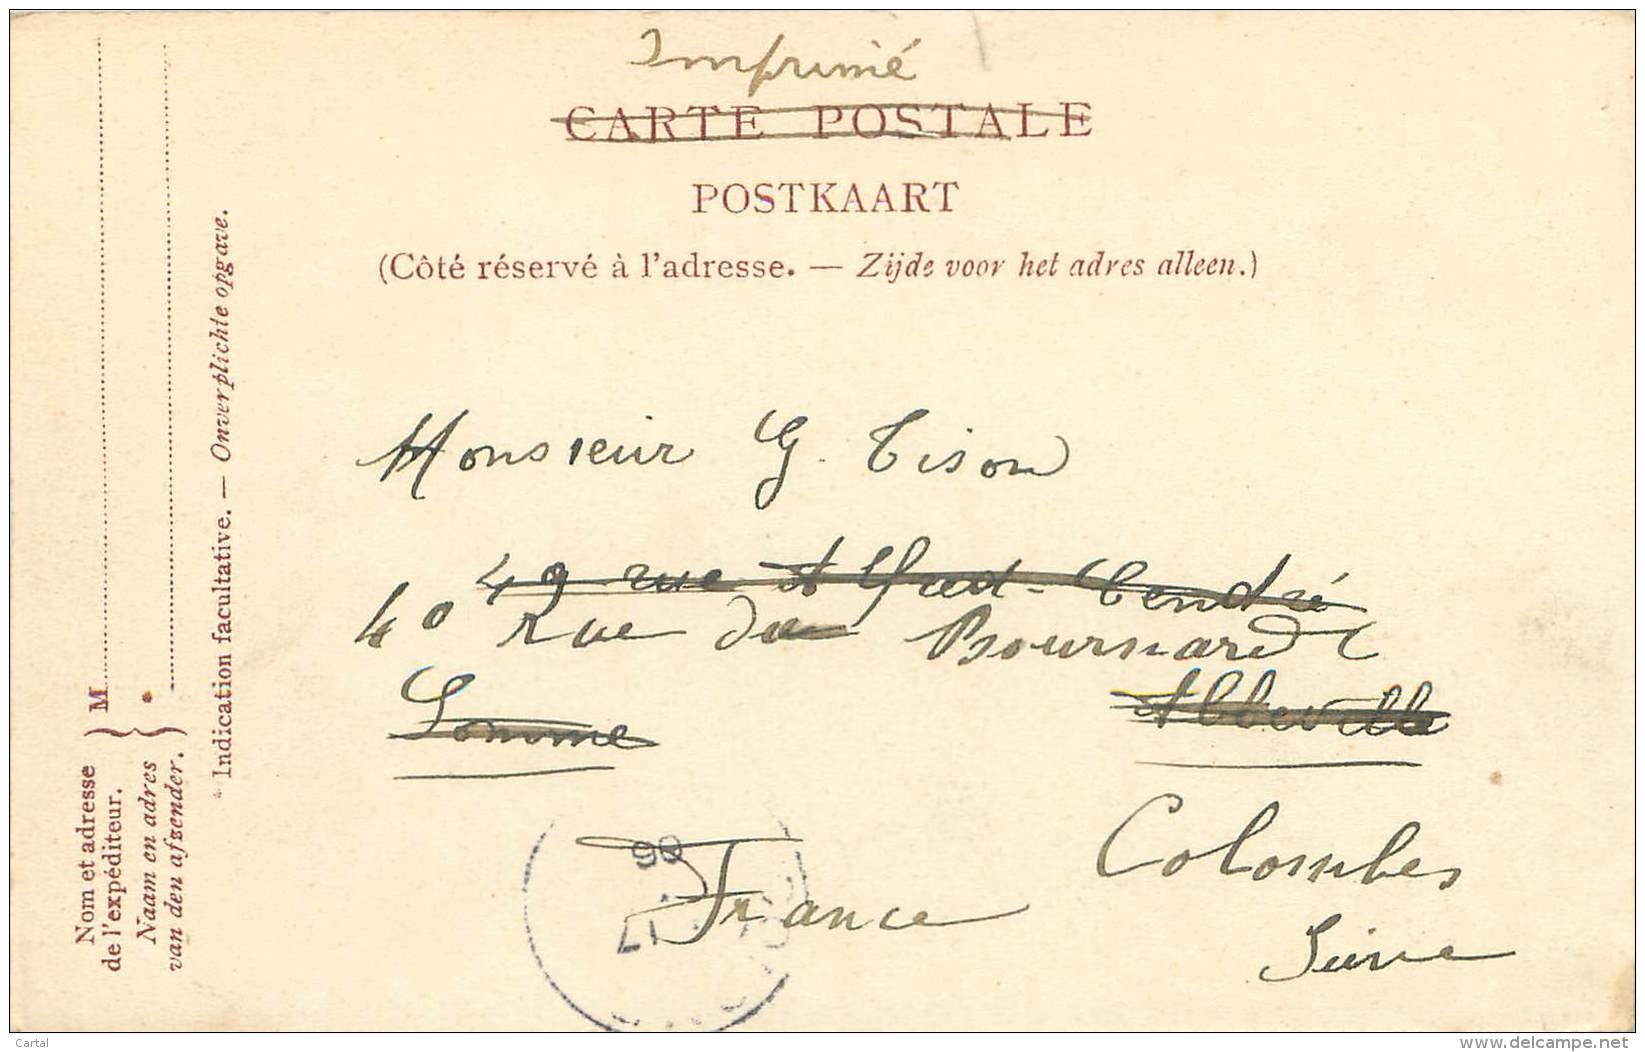 Imprimé
CARTE POSTALE
POSTKAART
(Côté réservé à l'adresse. — Zijde voor het adres alleen.)
Monsieur G. Tison
49 rue Alfred-Cendré
40 Rue du Bournard
Somme Abbeville
France Colombes
Seine
06
17
M
*
Nom et adresse
de l'expéditeur.
Naam en adres
van den afzender.
* Indication facultative. — Onverplichte opgave.
Cartal
www.delcampe.net